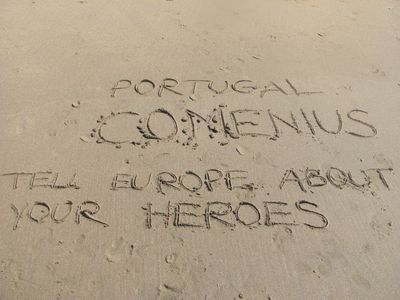 PORTUGAL
COMENIUS
TELL EUROPE ABOUT
YOUR HEROES